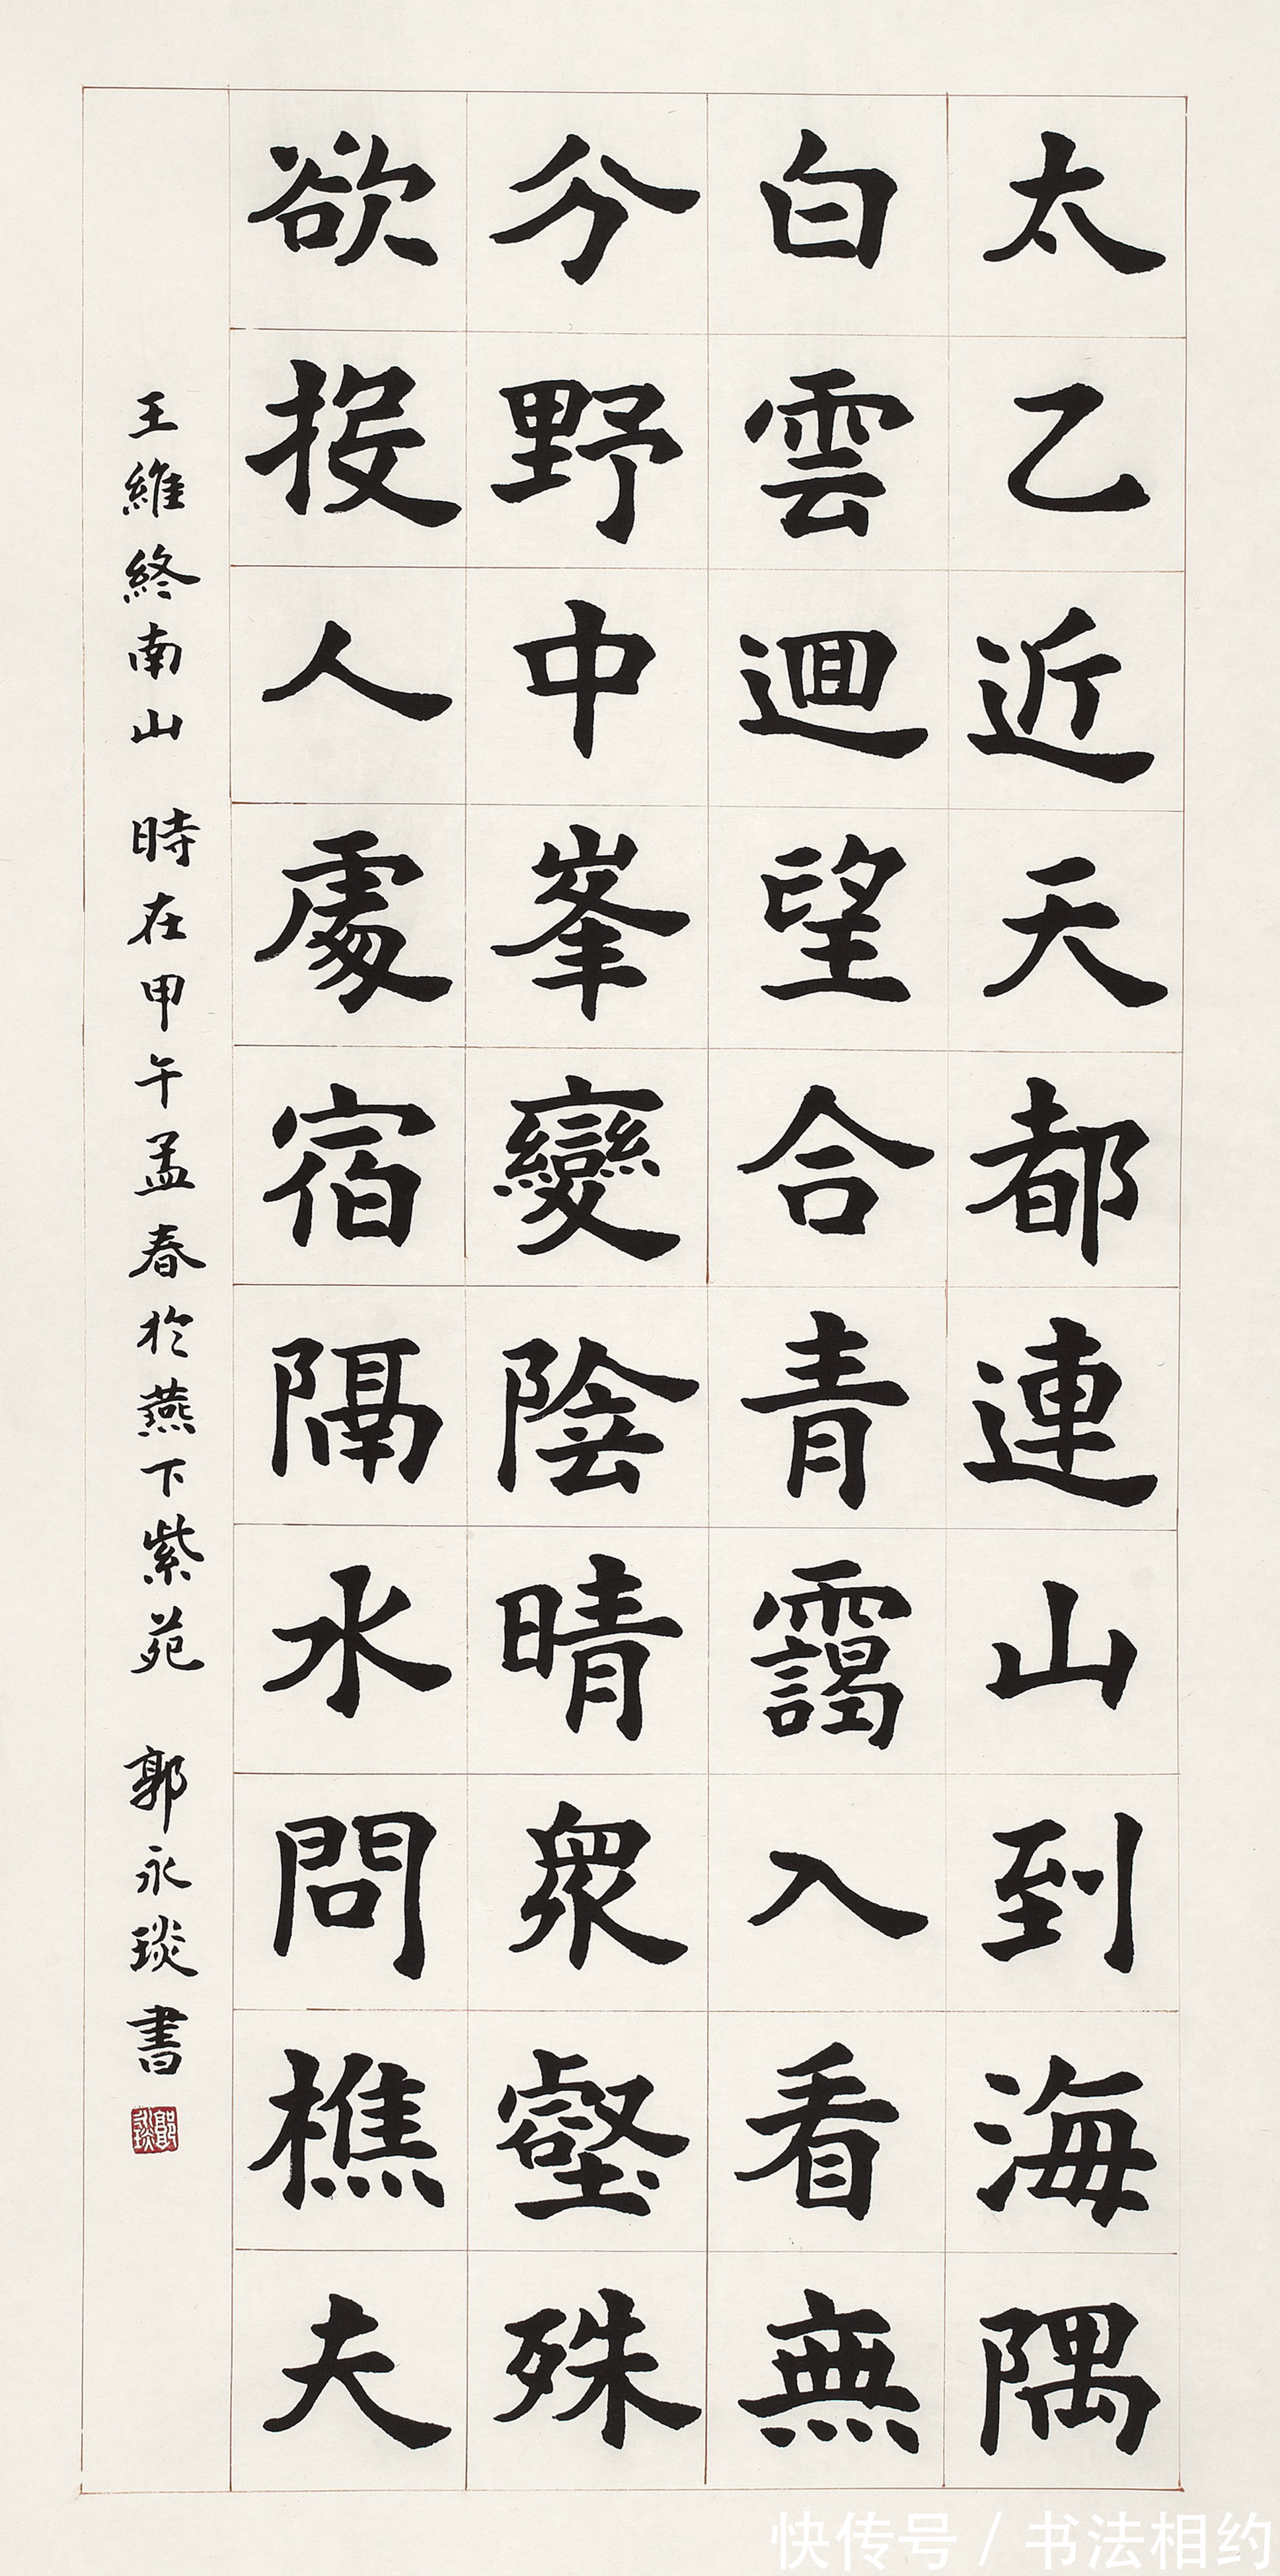 太乙近天都連山到海隅
白雲迴望合青靄入看無
分野中峯變陰晴衆壑殊
欲投人處宿隔水問樵夫
王維終南山 時在甲午孟春於燕下紫苑 郭永琰書
郭永琰
快传号 / 书法相约